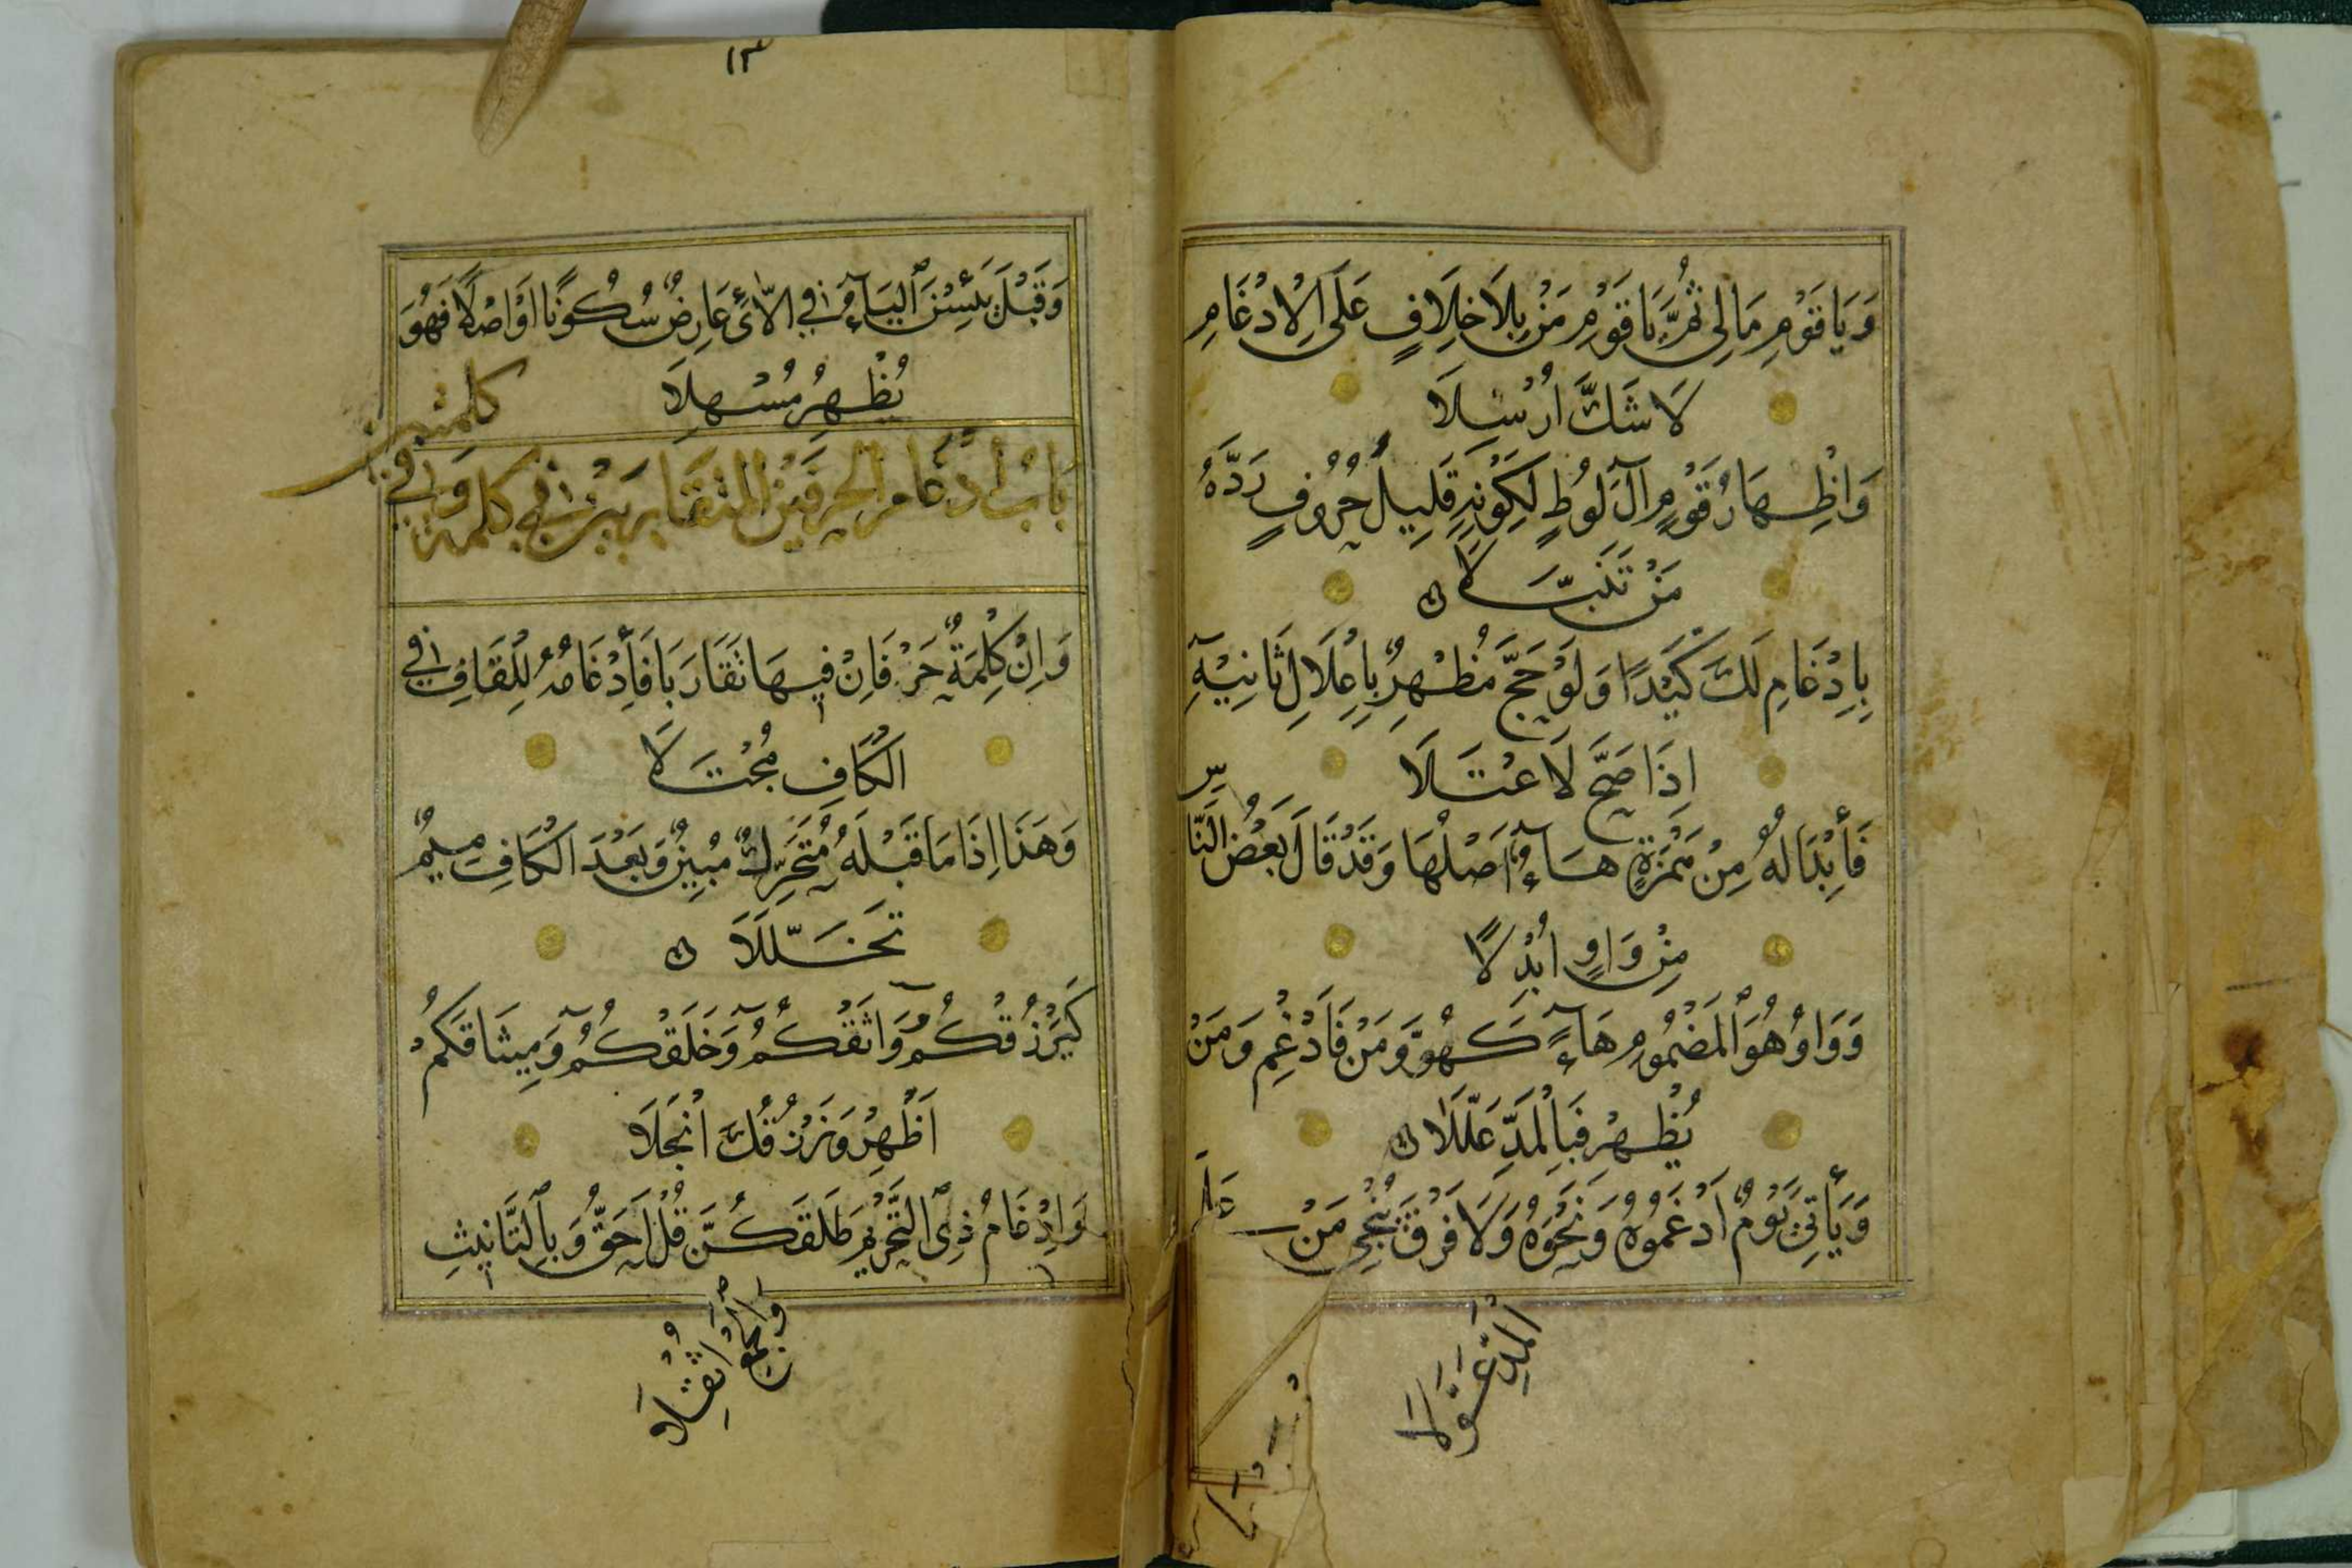 وَيَا قَوْمِ مَالِي ثُمَّ يَا قَوْمِ مَنْ بِلَا خِلَافٍ عَلَى الْاِدْغَامِ
لَا شَكَّ اُرْسِلَا
وَاِظْهَارُ قَوْمٍ آلَ لُوطٍ لِكَوْنِهِ قَلِيلَ حُرُوفٍ رَدَّهُ
مَنْ تَنَبَّلَا
بِاِدْغَامِ لَكَ كَيْدًا وَلَوْ حَجَّ مُظْهِرٌ بِاِعْلَالِ ثَانِيْهِ
اِذَا صَحَّ لَاعْتَلَا
فَأِبْدَالُهُ مِنْ هَمْزَةٍ هَاءٌ اَصْلُهَا وَقَدْ قَالَ بَعْضُ النَّاسِ
مِنْ وَاوٍ اُبْدِلَا
وَوَاوُ هُوَ الْمَضْمُومِ هَاءً كَهُوَّ وَمَنْ فَاَدْغِمْ وَمَنْ
يُظْهِرْ فَبِالْمَدِّ عَلَّلَا
وَيَأْتِيَ يَوْمٌ اَدْغَمُوهُ وَنَحْوَهُ وَلَا فَرْقَ يُنْجِي مَنْ عَلَى
الْمَدِّ عَوَّلَا
١٣
وَقَبْلَ يَئِسْنَ الْيَاءُ فِي الَّائِ عَارِضٌ سُكُونًا اَوْ اَصْلًا فَهُوَ
يُظْهِرُ مُسْهِلَا
بَابُ اِدْغَامِ الْحَرْفَيْنِ الْمُتَقَارِبَيْنِ فِي كَلِمَةٍ وَفِي
كلمتين
وَاِنْ كِلْمَةٌ حَرْفَانِ فِيهَا تَقَارَبَا فَأِدْغَامُهُ لِلْقَافِ فِي
الْكَافِ مُجْتَلَا
وَهَذَا اِذَا مَا قَبْلَهُ مُتَحَرِّكٌ مُبِينٌ وَبَعْدَ الْكَافِ مِيمٌ
تَخَلَّلَا
كَيَرْزُقْكُمُ وَاثَقْكُمُ وَخَلَقْكُمُ وَمِيثَاقَكُمْ
اَظْهِرْ وَنَرْزُقُكَ انْجَلَا
وَاِدْغَامُ ذِي التَّحْرِيْمِ طَلَّقَكُنَّ قُلْ اَحَقُّ وَبِالتَّانِيثِ
وَالْجَمْعِ اُثْقِلَا